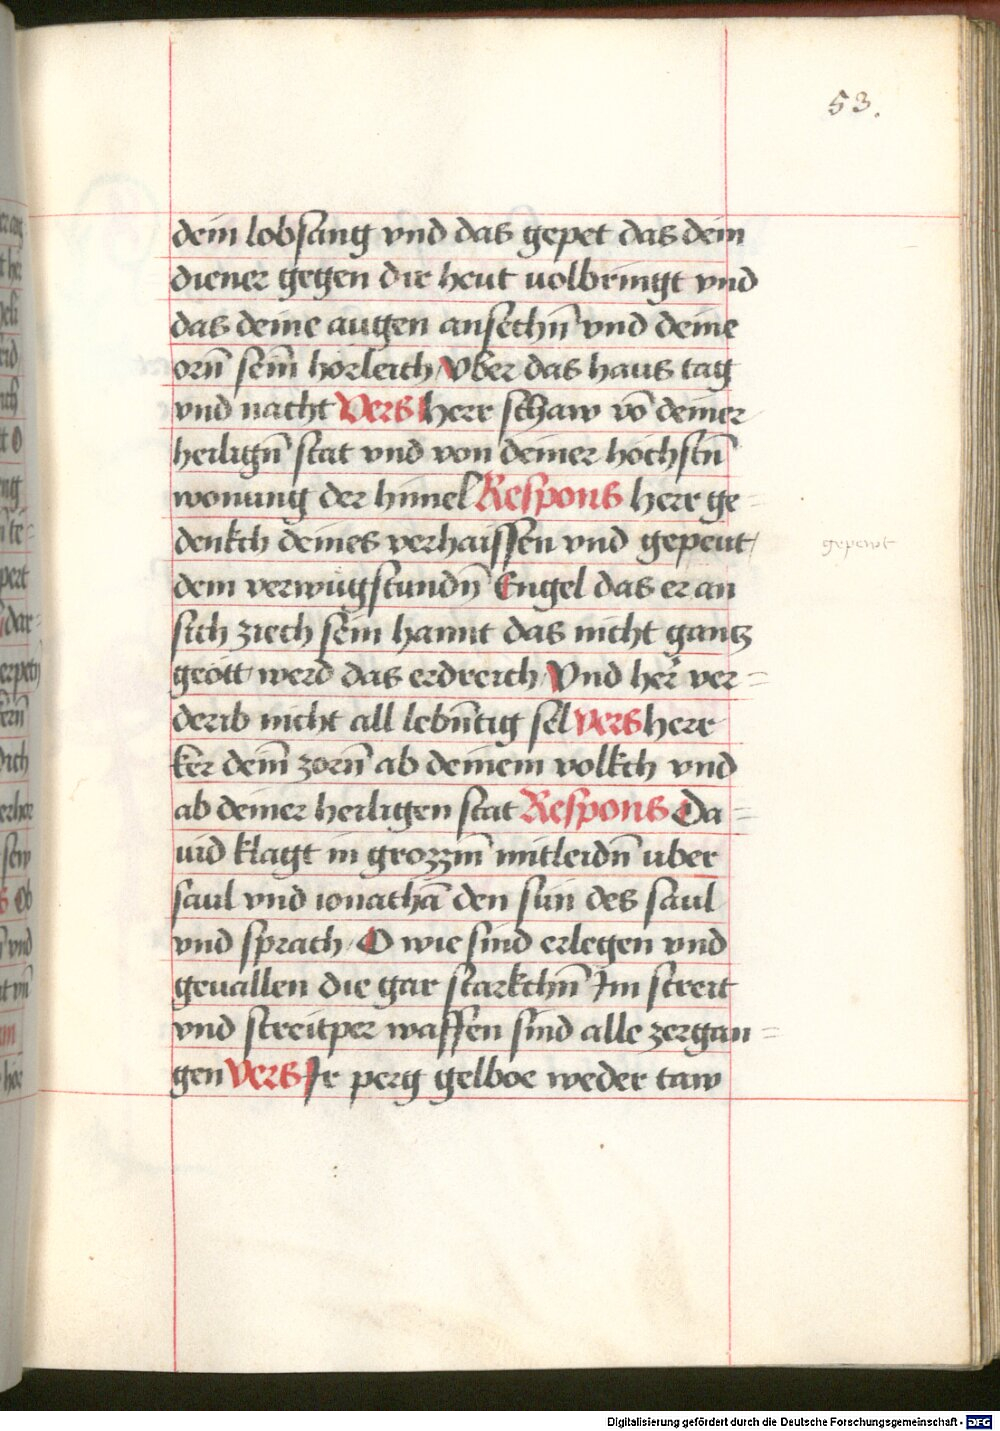 53.
dein lobsang vnd das gepet das dein
diener gegen dir heut uolbringt vnd
das deine augen ansechn̄ vnd deine
orn̄ sein̄ hörleich / Vber das haus tag
vnd nacht Vers herr schaw vō deiner
heilign̄ stat vnd von deiner höchstn̄
wonung der himel Respons herr ge=
denkch deines verhaissen vnd gepeut /
gepewt
dem verwügstundn̄ Engel das er an
sich ziech sein hannt das nicht gantz
geött werd das erdreich / Vnd her̄ ver=
derib nicht all lebn̄tig sel vers herr
ker dein̄ zorn̄ ab deinem volkch vnd
ab deiner heiligen stat Respons Da=
uid klagt in grozzm̄ mitleidn̄ uber
saul vnd ionathā den sun des saul
vnd sprach / O wie sind erlegen vnd
geuallen die gar starkchn̄ Im streit
vnd streitper waffen sind alle zergan=
gen Vers Ir perg gelboe weder taw
Digitalisierung gefördert durch die Deutsche Forschungsgemeinschaft - DFG